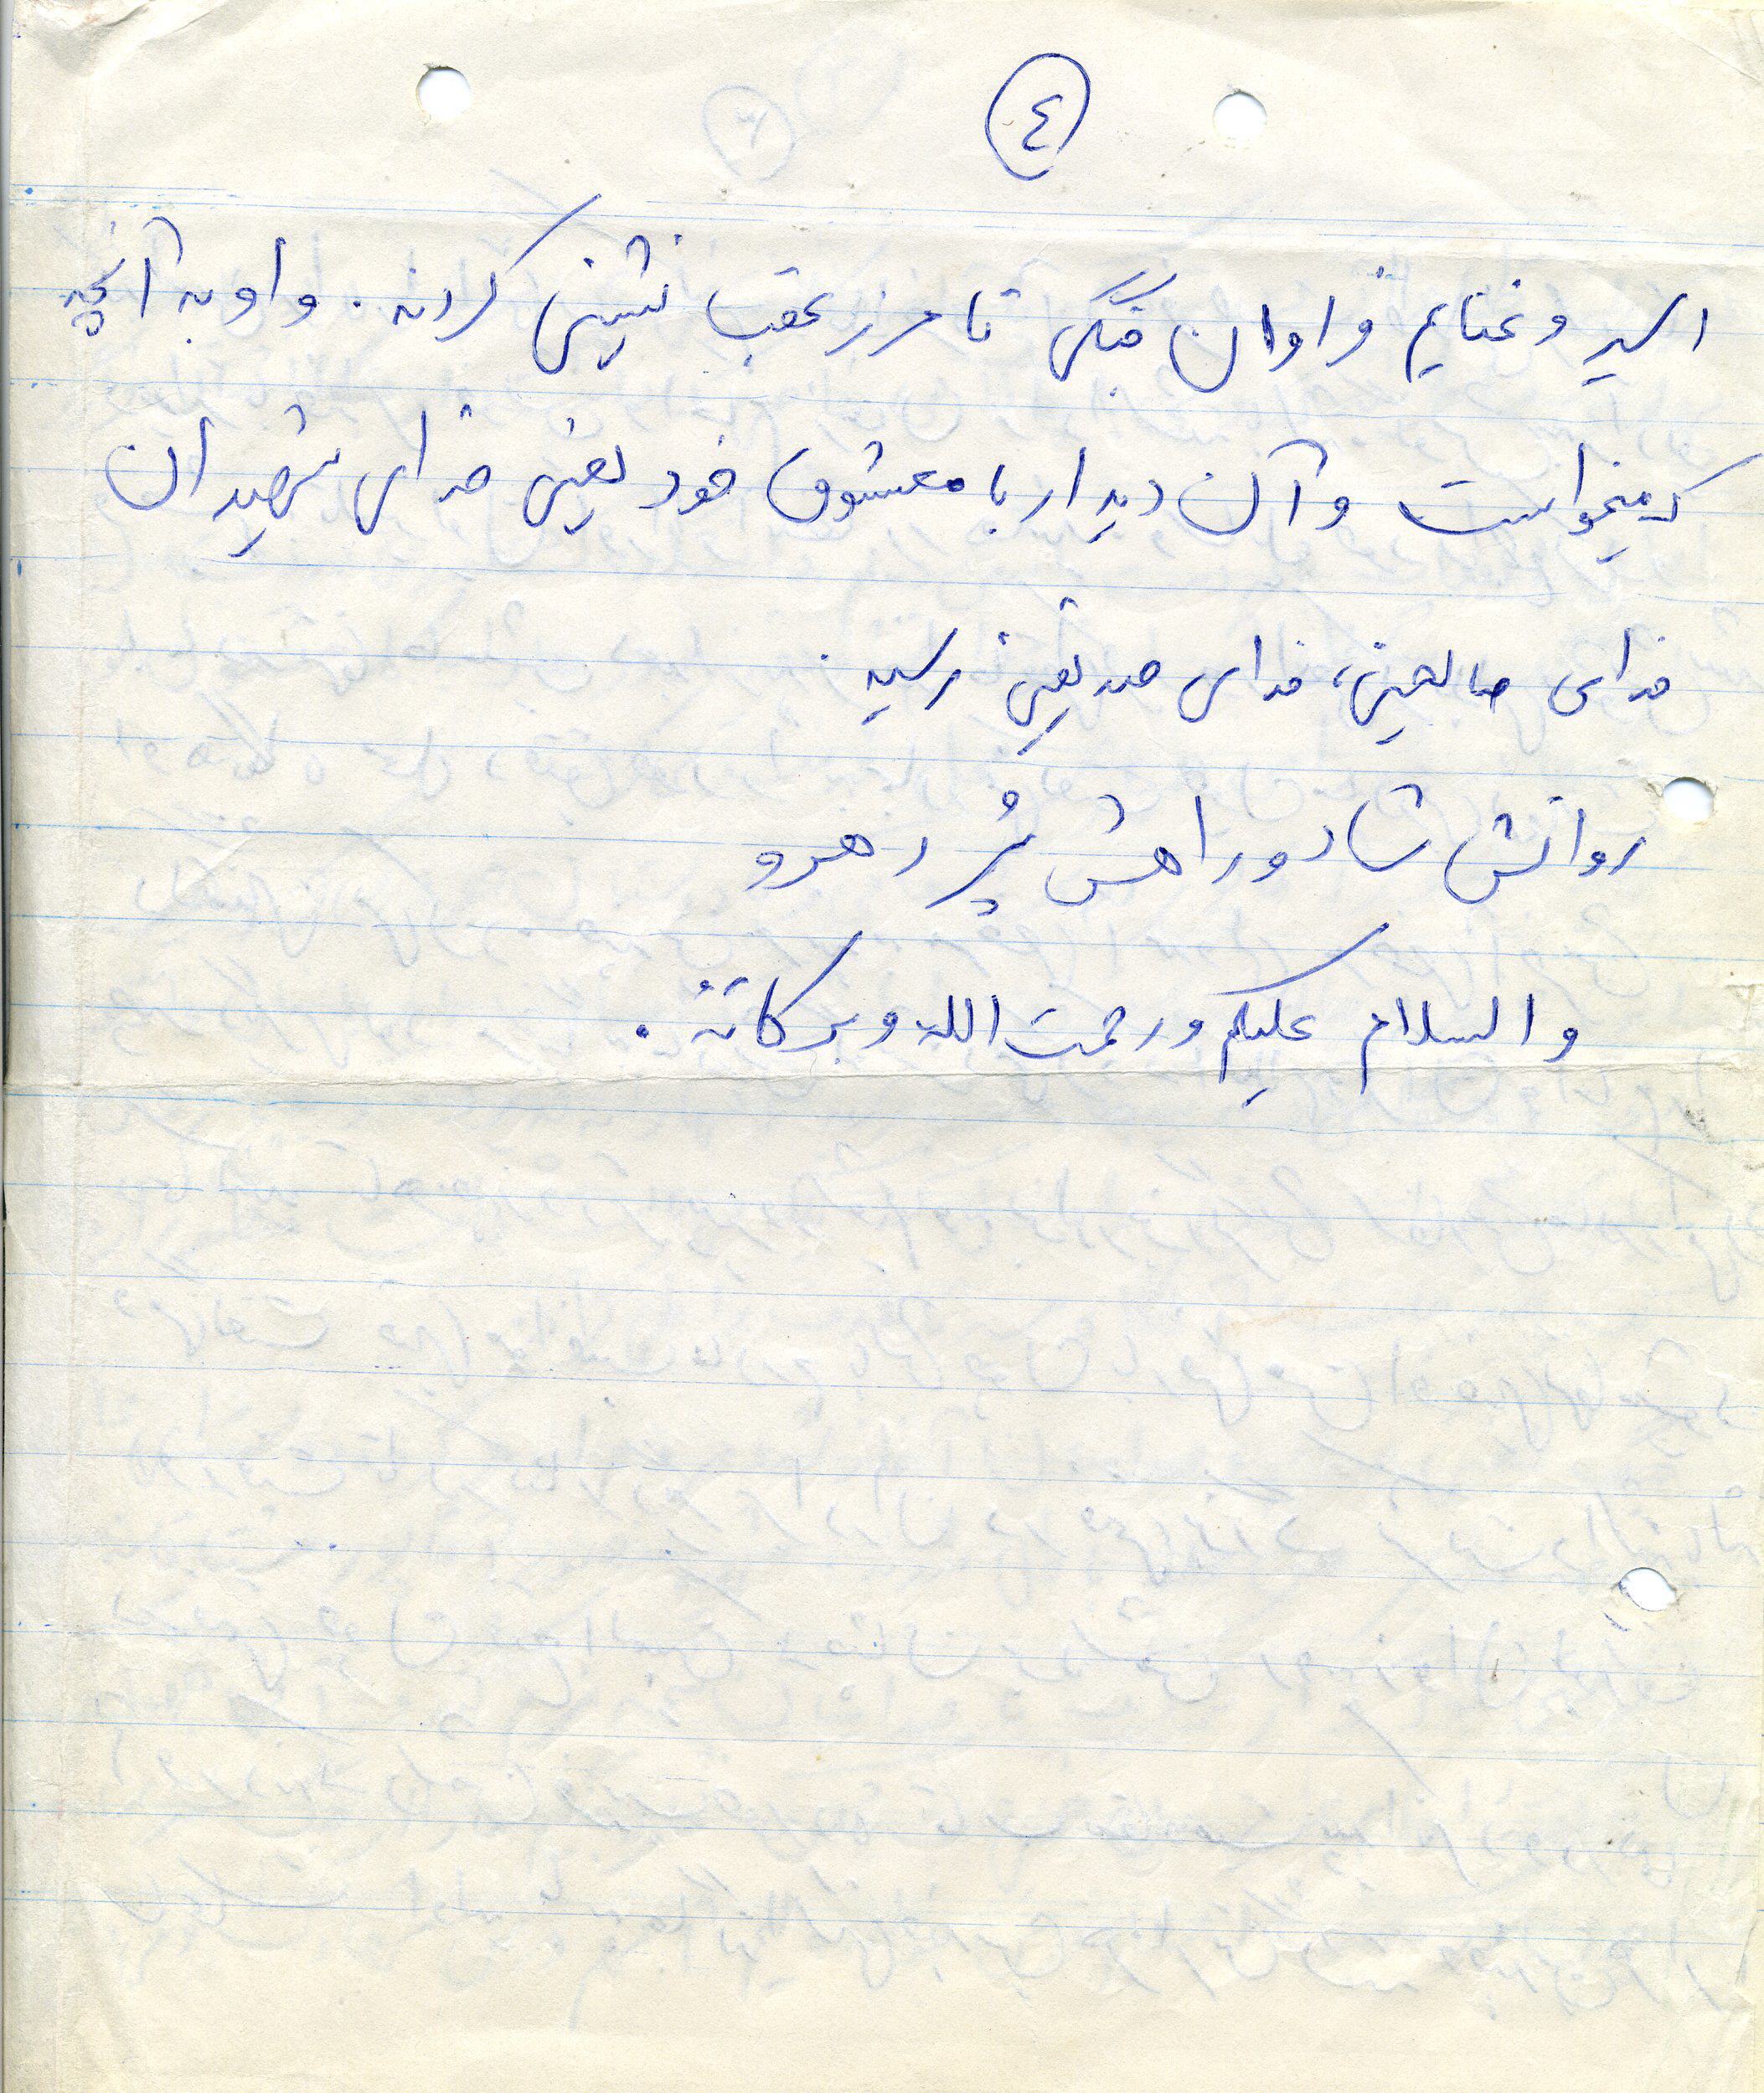 ٤
اسیر و غنایم فراوان جنگی تا مرز عقب نشینی کردند. و او به آنچه
که میخواست و آن دیدار با معشوق خود یعنی خدای شهیدان
خدای صالحین، خدای صدیقین رسید.
روانش شاد و راهش پُر رهرو
والسلام علیکم ورحمت الله وبرکاته.